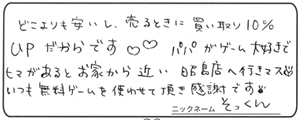 どこよりも安いし、売るときに買い取り10%
UPだからです♡♡ パパがゲーム大好きで
ヒマがあるとお家から近い 昭島店へ行きマス
いつも無料ゲームを使わせて頂き感謝です
ニックネーム そっくん